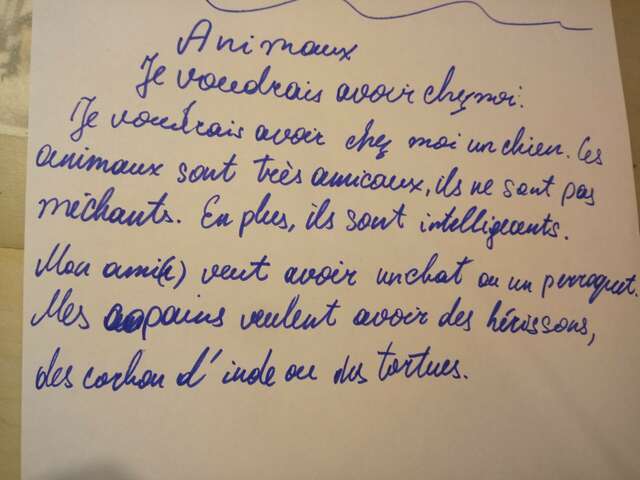 Animaux
Je voudrais avoir chez moi.
Je voudrais avoir chez moi un chien. Ces
animaux sont très amicaux, ils ne sont pas
méchants. En plus, ils sont intelligeents.
Mon ami(e) veut avoir un chat ou un perroquet.
Mes copains veulent avoir des hérissons,
des cochon d'inde ou des tortues.